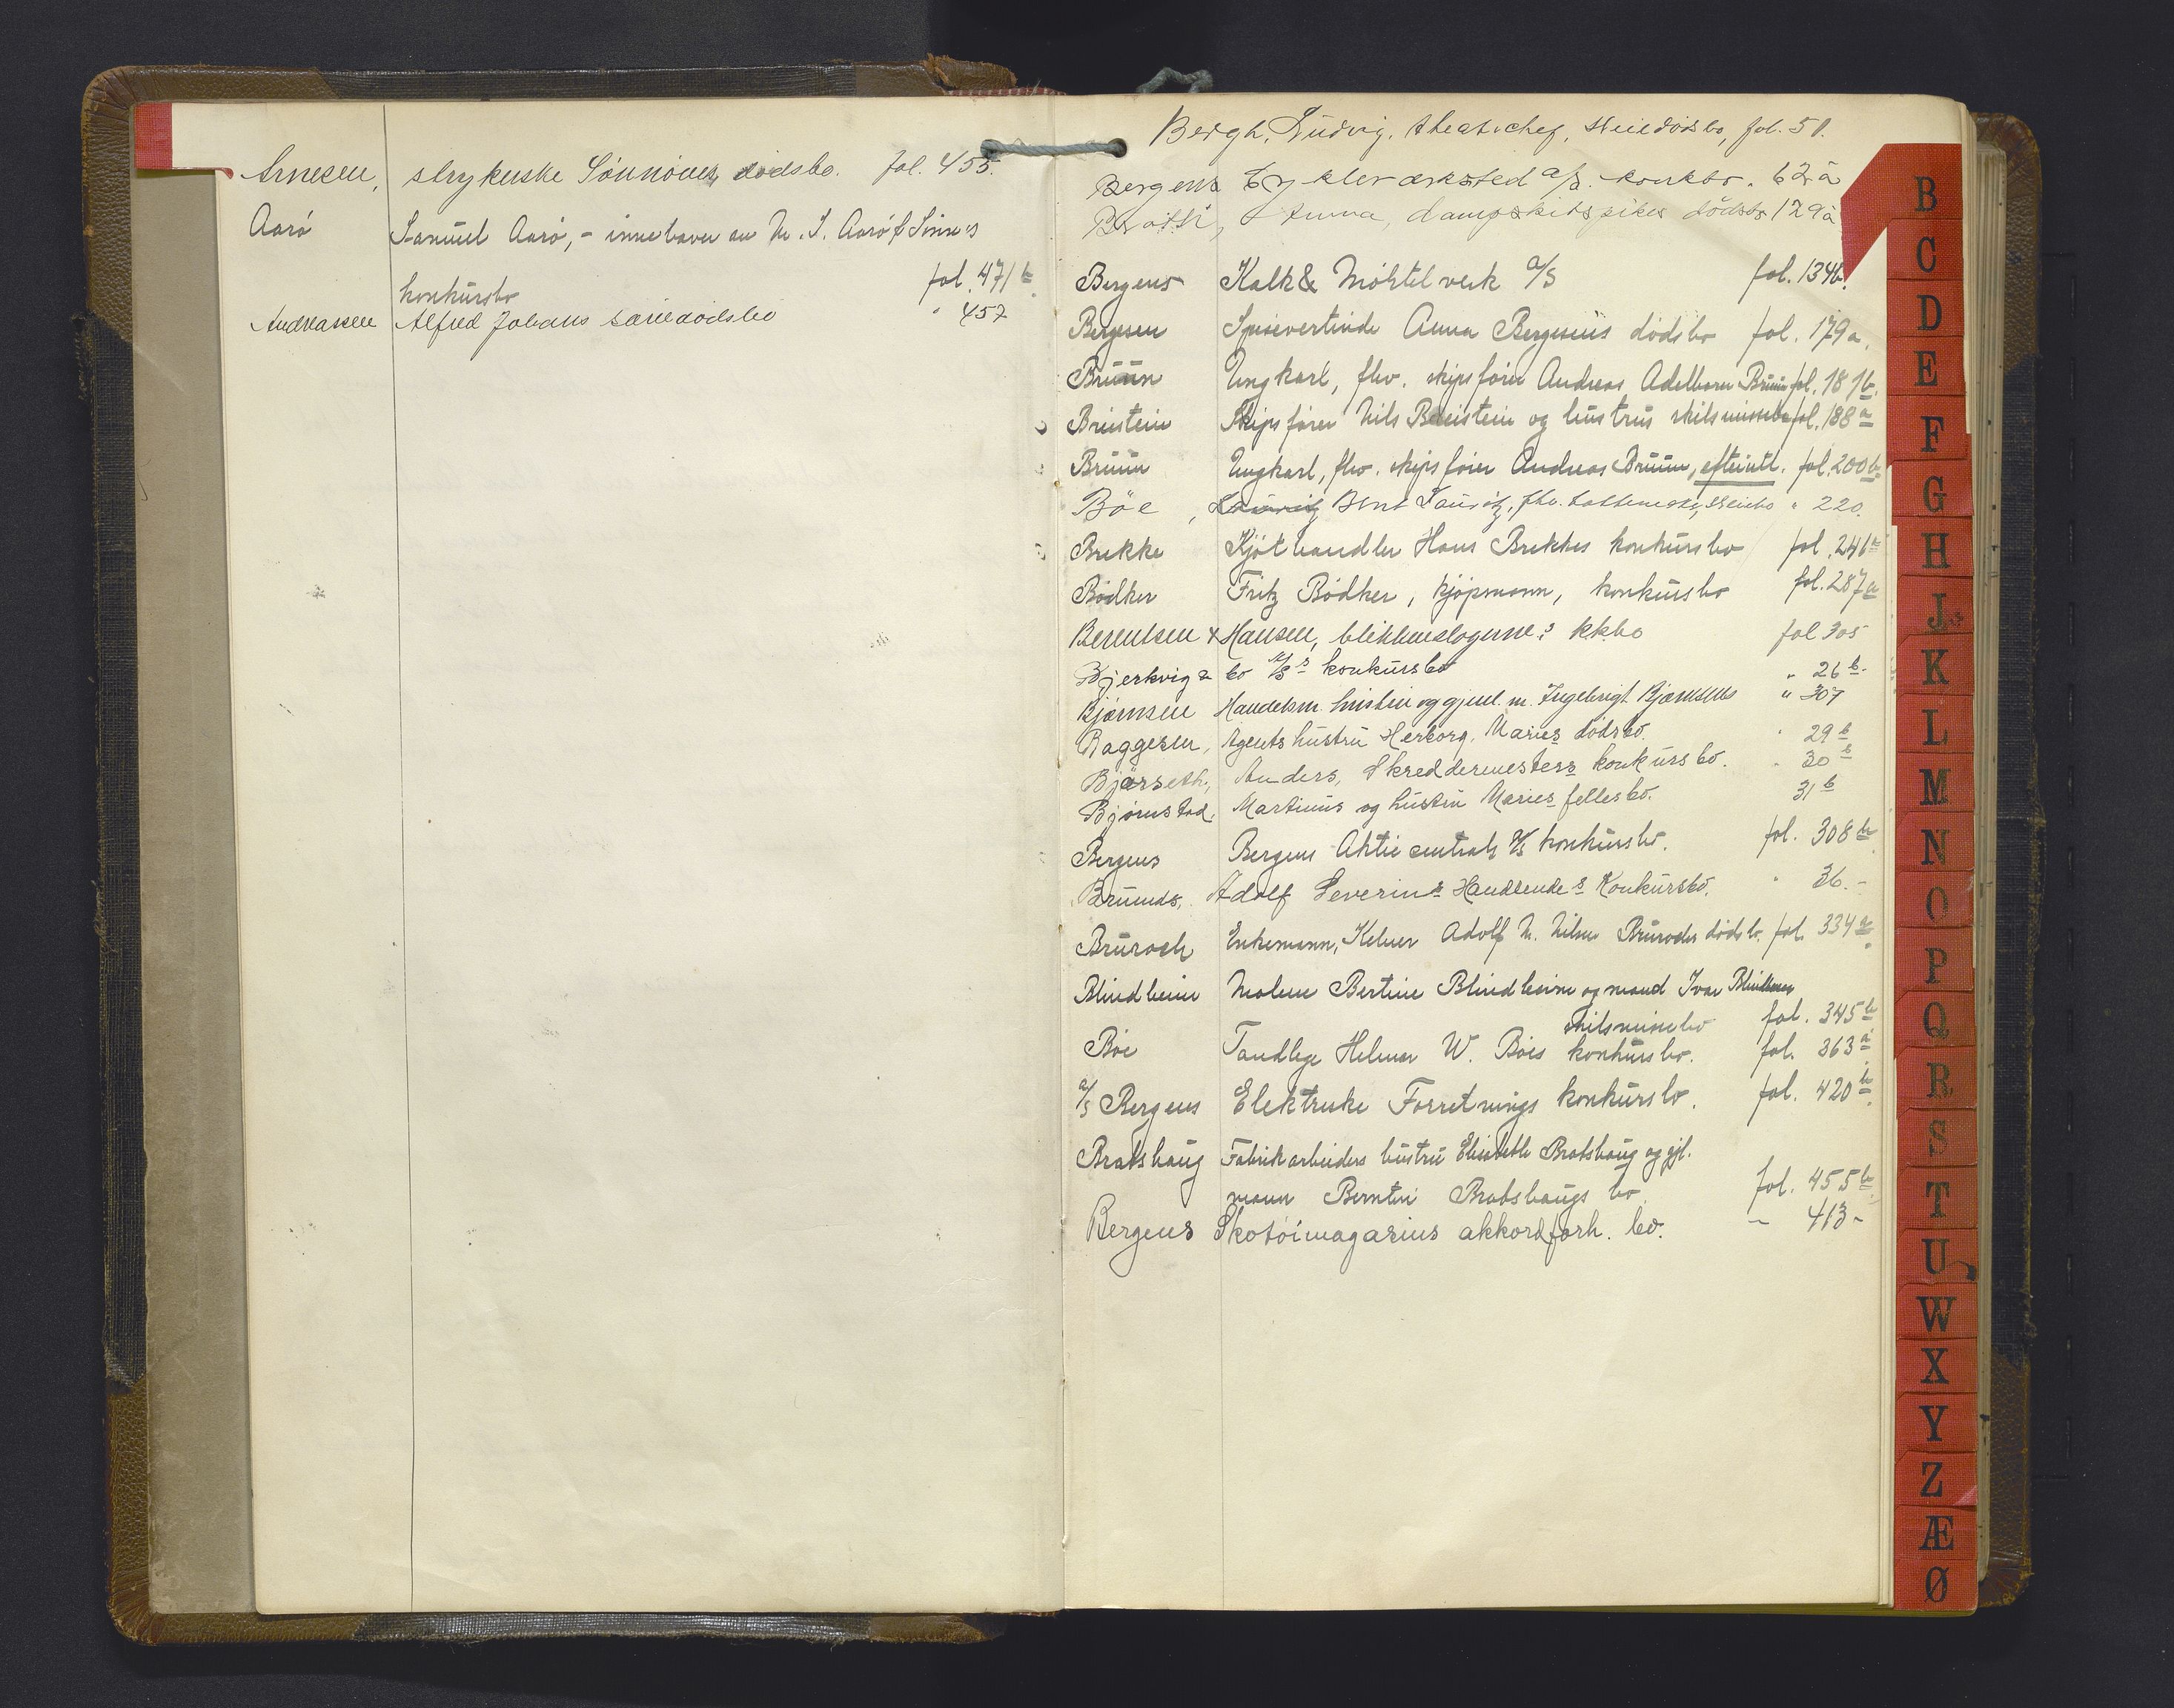 Arnesen, strykerske Sønnøves dødsbo. fol. 455.
Aarø Samuel Aarø, - innehaver av M. S. Aarø & Sønn's
konkursbo fol. 471 b.
Andreassen Alfred Johans særiedødsbo " 457
Bergh, Ludvig, theaterchef, skiedødsbo, fol. 51.
Bergens Cykleværksted a/s. konkbo. 62 a
Anna, dampskibspikes dødsbo 129 a
Bergens Kalk & Mørtelverk A/S fol. 134 b.
Bergesen Spisevertinde Anna Bergesens dødsbo fol. 179 a.
Bruun Ungkarl, fhv. skipsfører Andreas Adelbom Bruun fol. 181 b.
Breistein Skipsfører Nils Breistein og hustrus skilsmissebo fol. 188 a
Bruun Ungkarl, fhv. skipsfører Andreas Bruun, efterutl. fol. 200 b.
Böe, Lauritz Bent Lauritz, fhv. " 220.
Brekke Kjøthandler Hans Brekkes konkursbo fol. 241 a
Bødker Fritz Bødker, kjøpmann, konkursbo fol. 287 a
Berentsen & Hansen, blikkenslagerne's kkbo fol 305
Bjerkvig & Co A/S's konkursbo " 26 b.
Bjørnsen Handelsm. hustru og gjenl. m. Ingebrigt Bjørnsens " 307
Baggesen, Agents hustru Herborg Maries dødsbo. " 29 b
Bjørseth, Anders, Skreddermesters konkursbo. " 30 b
Bjørnstad, Martinus og hustru Maries fellesbo. 31 b
Bergens Bergens Aktiecentrals A/S konkursbo. fol. 308 b.
Adolf Severins Handlendes Konkursbo. " 36. -
Bruroth Enkemann, Kelner Adolf M. Nilsen Bruroths dødsbo. fol. 334 a.
Blindheim Malene Bertine Blindheim og mand Ivar Blindheims
skilsmissebo fol. 345 b
Bøe Tandlege Helmer W. Bøes konkursbo. fol. 363 a.
A/S Bergens Elektriske Forretnings konkursbo. fol. 420 b.
Bratshaug Fabrikarbeiders hustru Elisabeth Bratshaug og gjl.
mann Berntin Bratshaugs bo. fol. 455 b.
Bergens Skotøimagasins akkordforh. bo. - 413 -
B
C
D
E
F
G
H
J
K
L
M
N
O
P
Q
R
S
T
U
W
X
Y
Z
Æ
Ø